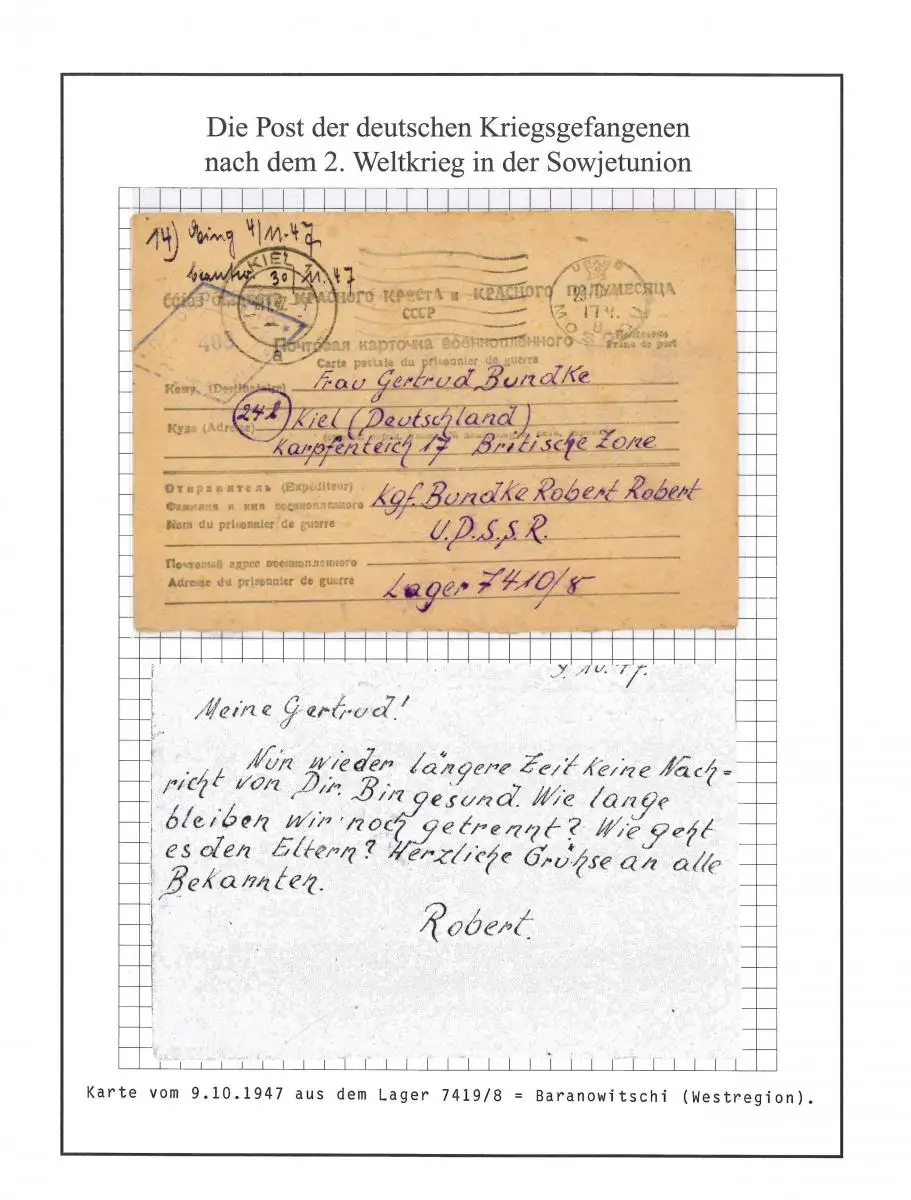 Die Post der deutschen Kriegsgefangenen
nach dem 2. Weltkrieg in der Sowjetunion
14) Eing 4/11.47
beantw. 30/11.47
KIEL
СОЮЗ ОБЩЕСТВ КРАСНОГО КРЕСТА и КРАСНОГО ПОЛУМЕСЯЦА
СССР
403
Почтовая карточка военнопленного
Carte postale du prisonnier de guerre
Franc de port
Кому (Destinataire) Frau Gertrud Bundke
24b
Куда (Adresse) Kiel (Deutschland)
Karpfenteich 17 Britische Zone
Отправитель (Expéditeur)
Фамилия и имя военнопленного
Nom du prisonnier de guerre
Kgf. Bundke Robert Robert
U.d.S.S.R.
Почтовый адрес военнопленного
Adresse du prisonnier de guerre
Lager 7410/8
9.10.47.
Meine Gertrud!
Nun wieder längere Zeit keine Nach=
richt von Dir. Bin gesund. Wie lange
bleiben wir noch getrennt? Wie geht
es den Eltern? Herzliche Grühse an alle
Bekannten.
Robert.
Karte vom 9.10.1947 aus dem Lager 7419/8 = Baranowitschi (Westregion).